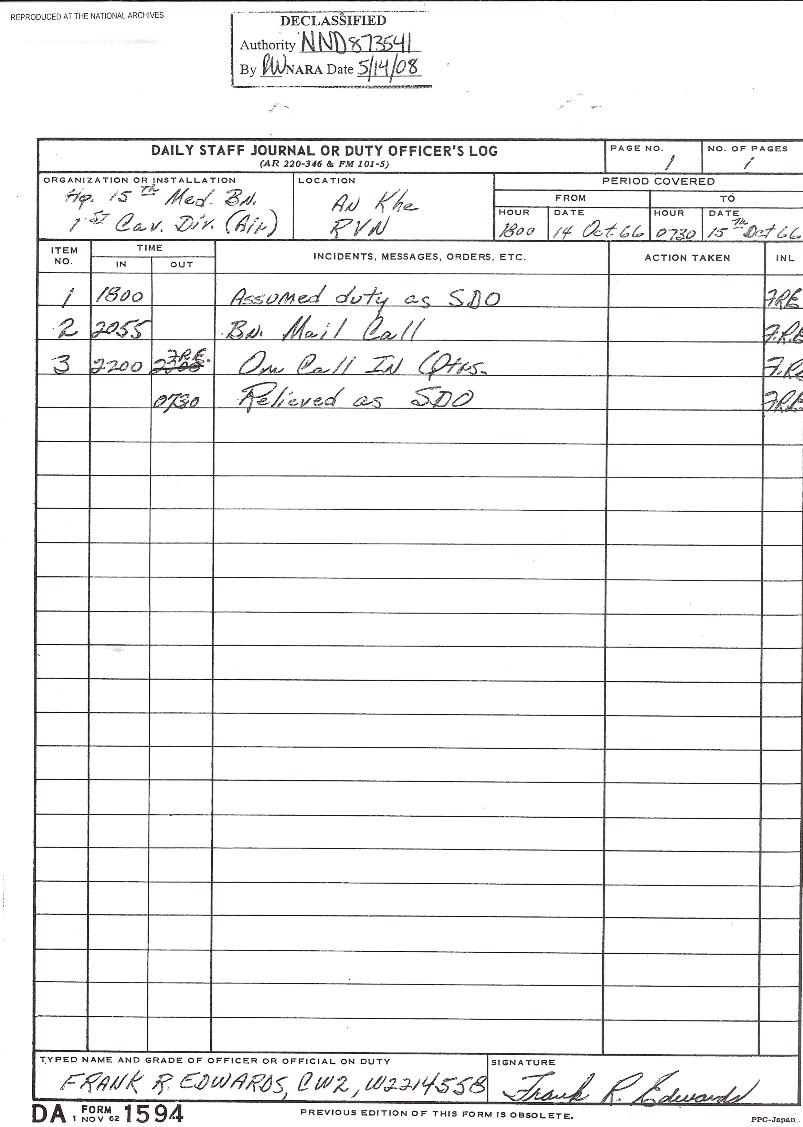 REPRODUCED AT THE NATIONAL ARCHIVES
DECLASSIFIED
Authority NND873541
By NARA Date 5/14/08
DAILY STAFF JOURNAL OR DUTY OFFICER'S LOG
(AR 220-346 & FM 101-5)
PAGE NO.
1
NO. OF PAGES
1
ORGANIZATION OR INSTALLATION
Hq. 15th Med. Bn.
1st Cav. Div. (Air)
LOCATION
An Khe
RVN
PERIOD COVERED
FROM TO
HOUR DATE HOUR DATE
1800 14 Oct. 66 0730 15th Oct 66
ITEM NO. TIME IN OUT INCIDENTS, MESSAGES, ORDERS, ETC. ACTION TAKEN INL
1 1800 Assumed duty as SDO FRE
2 2055 Bn. Mail Call F.R.E
3 2200 F.R.E. On Call IN Qtrs. F.R.E
0730 Relieved as SDO FRE
TYPED NAME AND GRADE OF OFFICER OR OFFICIAL ON DUTY
FRANK R. EDWARDS, CW2, W2214558
SIGNATURE
Frank R. Edwards
DA FORM 1 NOV 62 1594
PREVIOUS EDITION OF THIS FORM IS OBSOLETE.
PPC-Japan